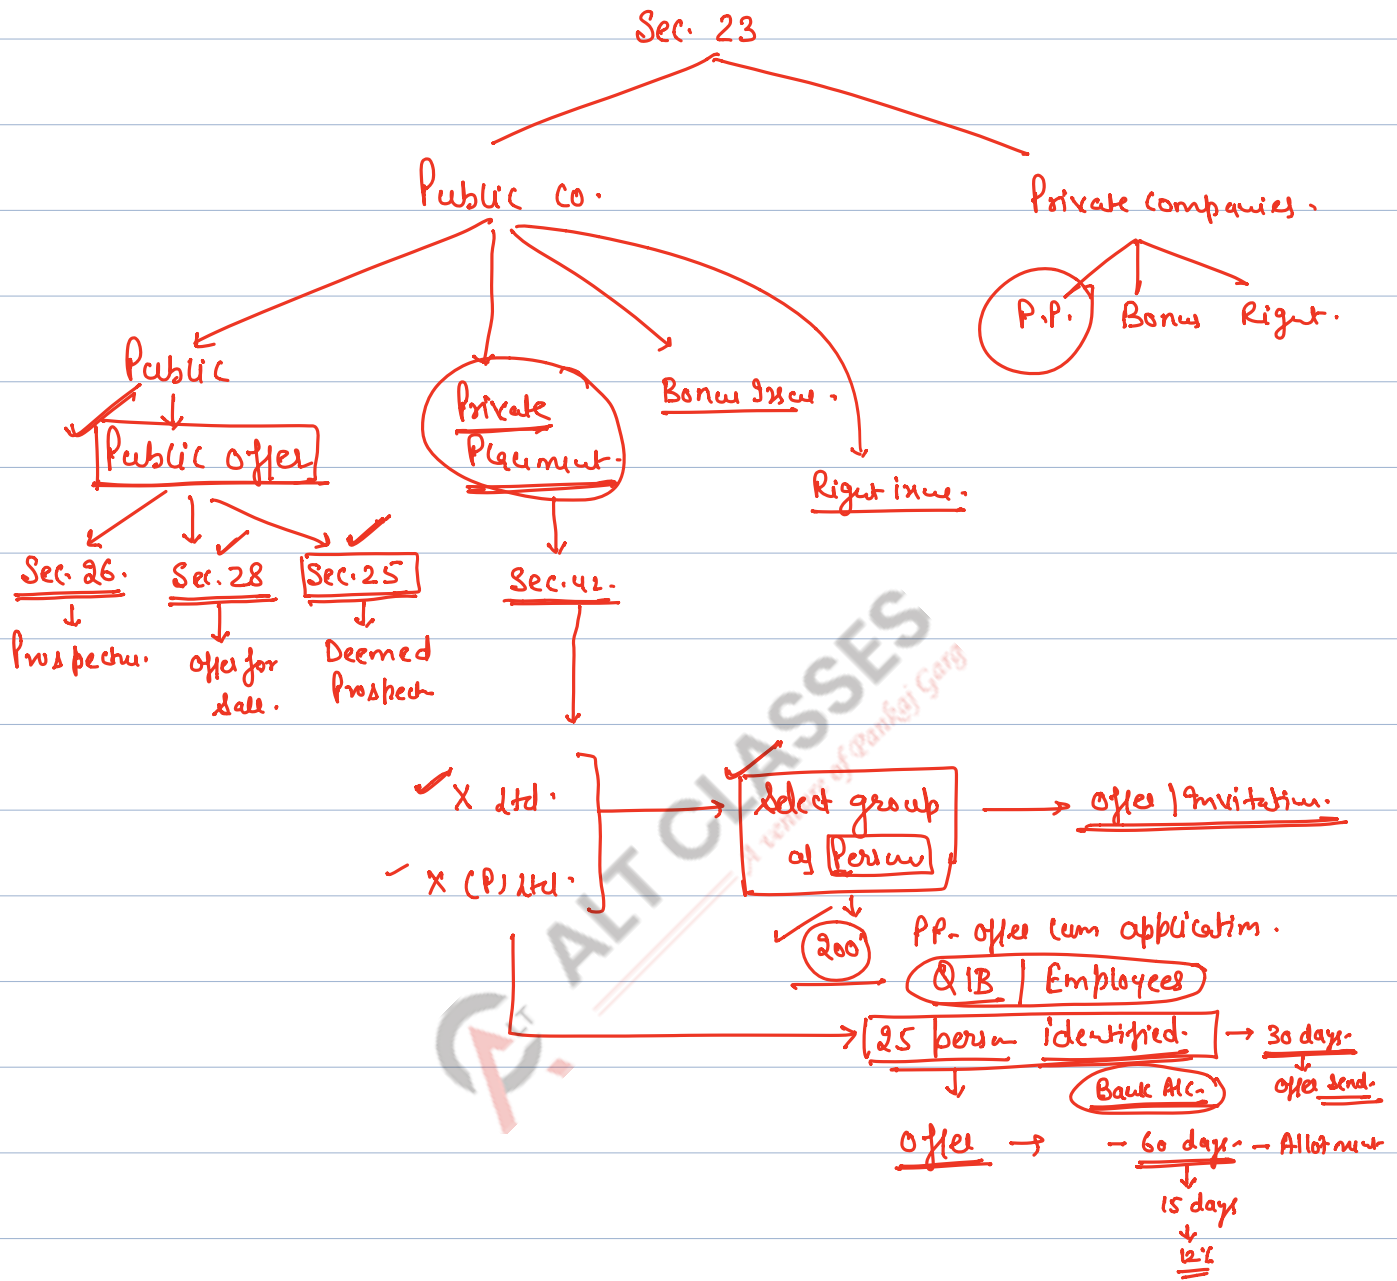 Sec. 23
Public co.
Private Companies.
P.P. Bonus Right.
Public
Public offer
Private
Placement.
Bonus Issue.
Right issue.
Sec. 26.
Sec. 28
Sec. 25
Sec. 42.
Prospectu.
offer for
Sale.
Deemed
Prospect
X Ltd.
X (P) Ltd.
Select group
of Person
offer / Invitation.
200
PP- offer cum application.
QIB | Employees
25 person identified.
30 days.
offer send.
Bank A/c.
offer
- 60 days. - Allotment
15 days
12%
ALT CLASSES
A venture of Pankaj Garg
LT